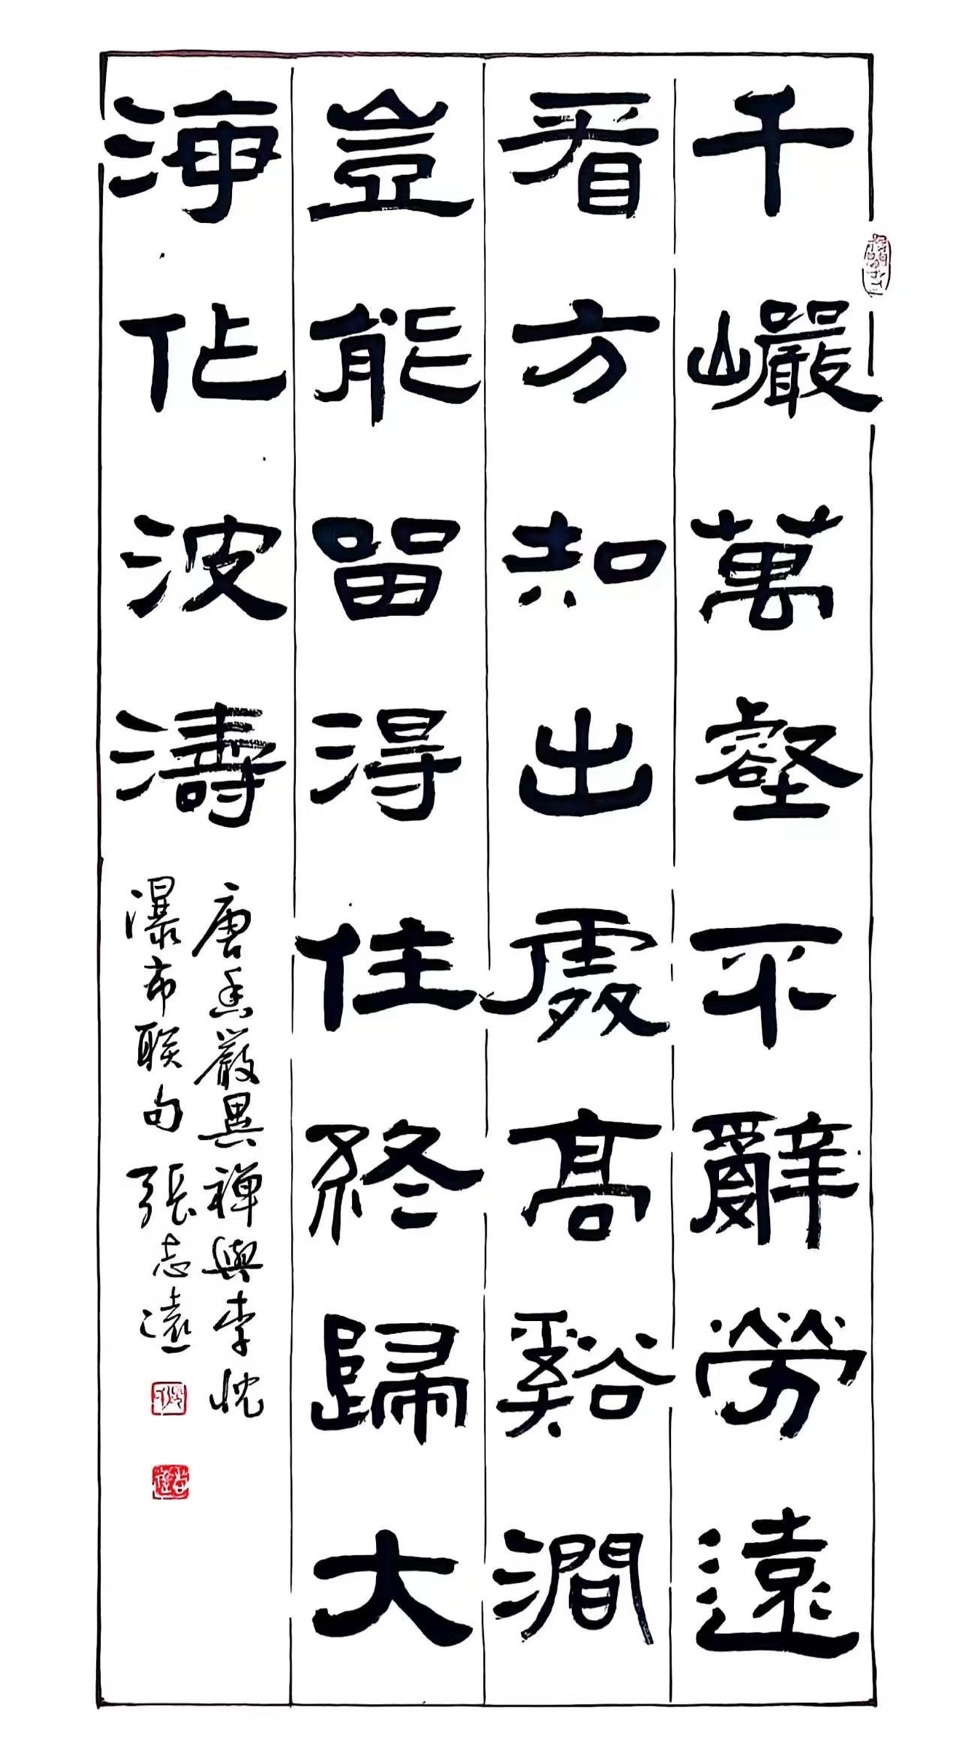 千巖萬壑不辭勞遠
看方知出處高谿澗
豈能留得住終歸大
海作波濤
唐香嚴異禅與李忱
瀑布联句 張志遠